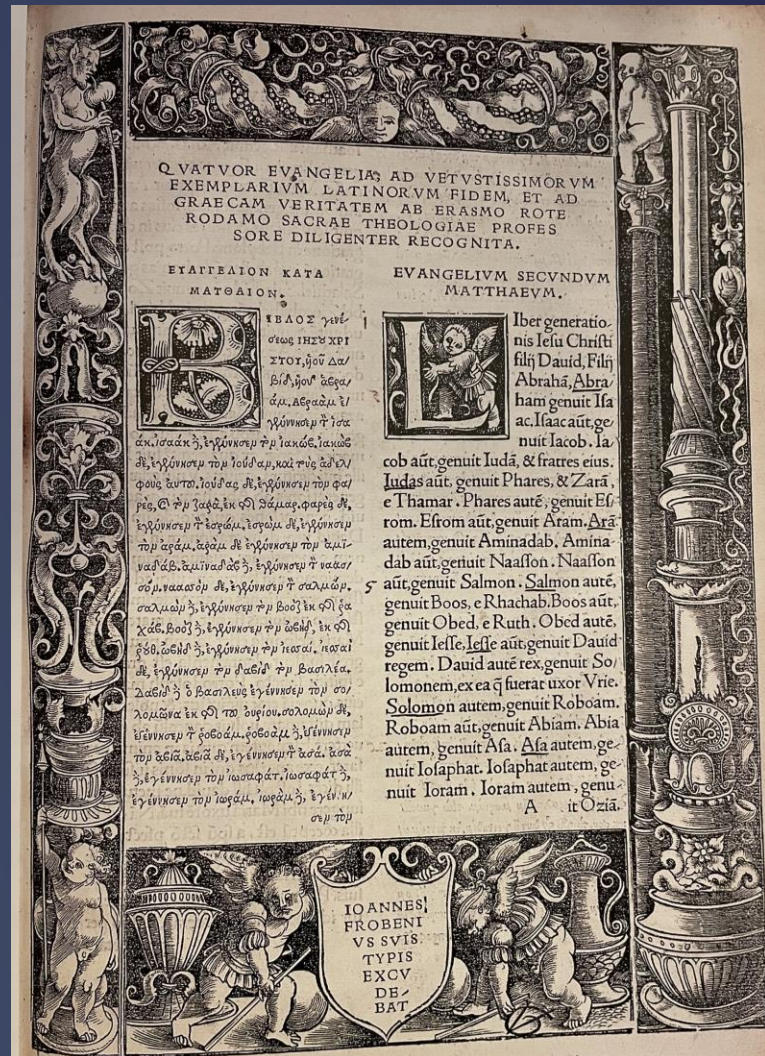 QVATVOR EVANGELIA, AD VETVSTISSIMORVM
EXEMPLARIVM LATINORVM FIDEM, ET AD
GRAECAM VERITATEM AB ERASMO ROTE
RODAMO SACRAE THEOLOGIAE PROFES
SORE DILIGENTER RECOGNITA.
ΕΥΑΓΓΕΛΙΟΝ ΚΑΤΑ
ΜΑΤΘΑΙΟΝ.
ΒΙΒΛΟΣ γενέ-
σεως ΙΗΣΟΥ ΧΡΙ
ΣΤΟΥ, ὑοῦ Δα/
βίδ, ὑοῦ ἀβρα/
άμ. Αβραὰμ ἐ/
γέννησεμ τ ἰσα
άκ. ἰσαὰκ δ, ἐγέννησεμ τὸμ ἰακώβ. ἰακὼβ
δὲ, ἐγέννησεμ τὸμ ἰούδαμ, καὶ τοὺς ἀδελ/
φοὺς αὐτοῦ. ἰούδας δὲ, ἐγέννησεμ τὸμ φα/
ρὲς, καὶ τὸμ ζαρὰ, ἐκ τῆς θάμαρ. φαρὲς δὲ,
ἐγέννησεμ τ ἐσρώμ. ἐσρὼμ δὲ, ἐγέννησεμ
τὸμ ἀράμ. ἀρὰμ δὲ ἐγέννησεμ τὸμ ἀμι-
ναδάβ. ἀμιναδὰβ δ, ἐγέννησεμ τ ναασ/
σόμ. ναασσὸμ δὲ, ἐγέννησεμ τ σαλμώμ.
σαλμὼμ δ, ἐγέννησεμ τὸμ βοὸζ ἐκ τῆς ῥα
χάβ. βοὸζ δ, ἐγέννησεμ τὸμ ὠβὴδ, ἐκ τῆς
ῥούθ. ὠβὴδ δ, ἐγέννησεμ τὸμ ἰεσσαί. ἰεσσαὶ
δὲ, ἐγέννησεμ τὸμ δαβὶδ τὸμ βασιλέα.
Δαβὶδ δ ὁ βασιλεὺς ἐγέννησεμ τὸμ σο/
λομῶνα ἐκ τῆς τοῦ οὐρίου. σολομὼμ δὲ,
ἐγέννησεμ τ ῥοβοάμ. ῥοβοὰμ δ, ἐγέννησεμ
τὸμ ἀβιὰ. ἀβιὰ δὲ, ἐγέννησεμ τ ἀσά. ἀσὰ
δ, ἐγέννησεμ τὸμ ἰωσαφάτ. ἰωσαφὰτ δ,
ἐγέννησεμ τὸμ ἰωράμ, ἰωρὰμ δ, ἐγέννη/
σεμ τὸμ
EVANGELIVM SECVNDVM
MATTHAEVM.
LIber generatio-
nis Iesu Christi
filij Dauid, Filij
Abrahā, Abra
ham genuit Isa
ac. Isaac aūt, ge
nuit Iacob. Ia/
cob aūt, genuit Iudā, & fratres eius.
Iudas aūt, genuit Phares, & Zarā,
e Thamar. Phares autē, genuit Es
rom. Esrom aūt, genuit Aram. Arā
autem, genuit Aminadab. Amina
dab aūt, genuit Naasson. Naasson
5 aūt, genuit Salmon. Salmon autē,
genuit Boos, e Rhachab. Boos aūt,
genuit Obed, e Ruth. Obed autē,
genuit Iesse, Iesse aūt, genuit Dauid
regem. Dauid autē rex, genuit So/
lomonem, ex ea q̄ fuerat uxor Vrie.
Solomon autem, genuit Roboam.
Roboam aūt, genuit Abiam. Abia
autem, genuit Asa. Asa autem, ge-
nuit Iosaphat. Iosaphat autem, ge-
nuit Ioram. Ioram autem, genu-
A it Oziā.
IOANNES
FROBENI
VS SVIS
TYPIS
EXCV
DE-
BAT